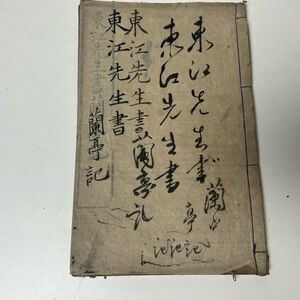 東江先生書蘭亭
東江先生書
記記記
東江先生書蘭亭記
東江先生書
東江先生書蘭亭記